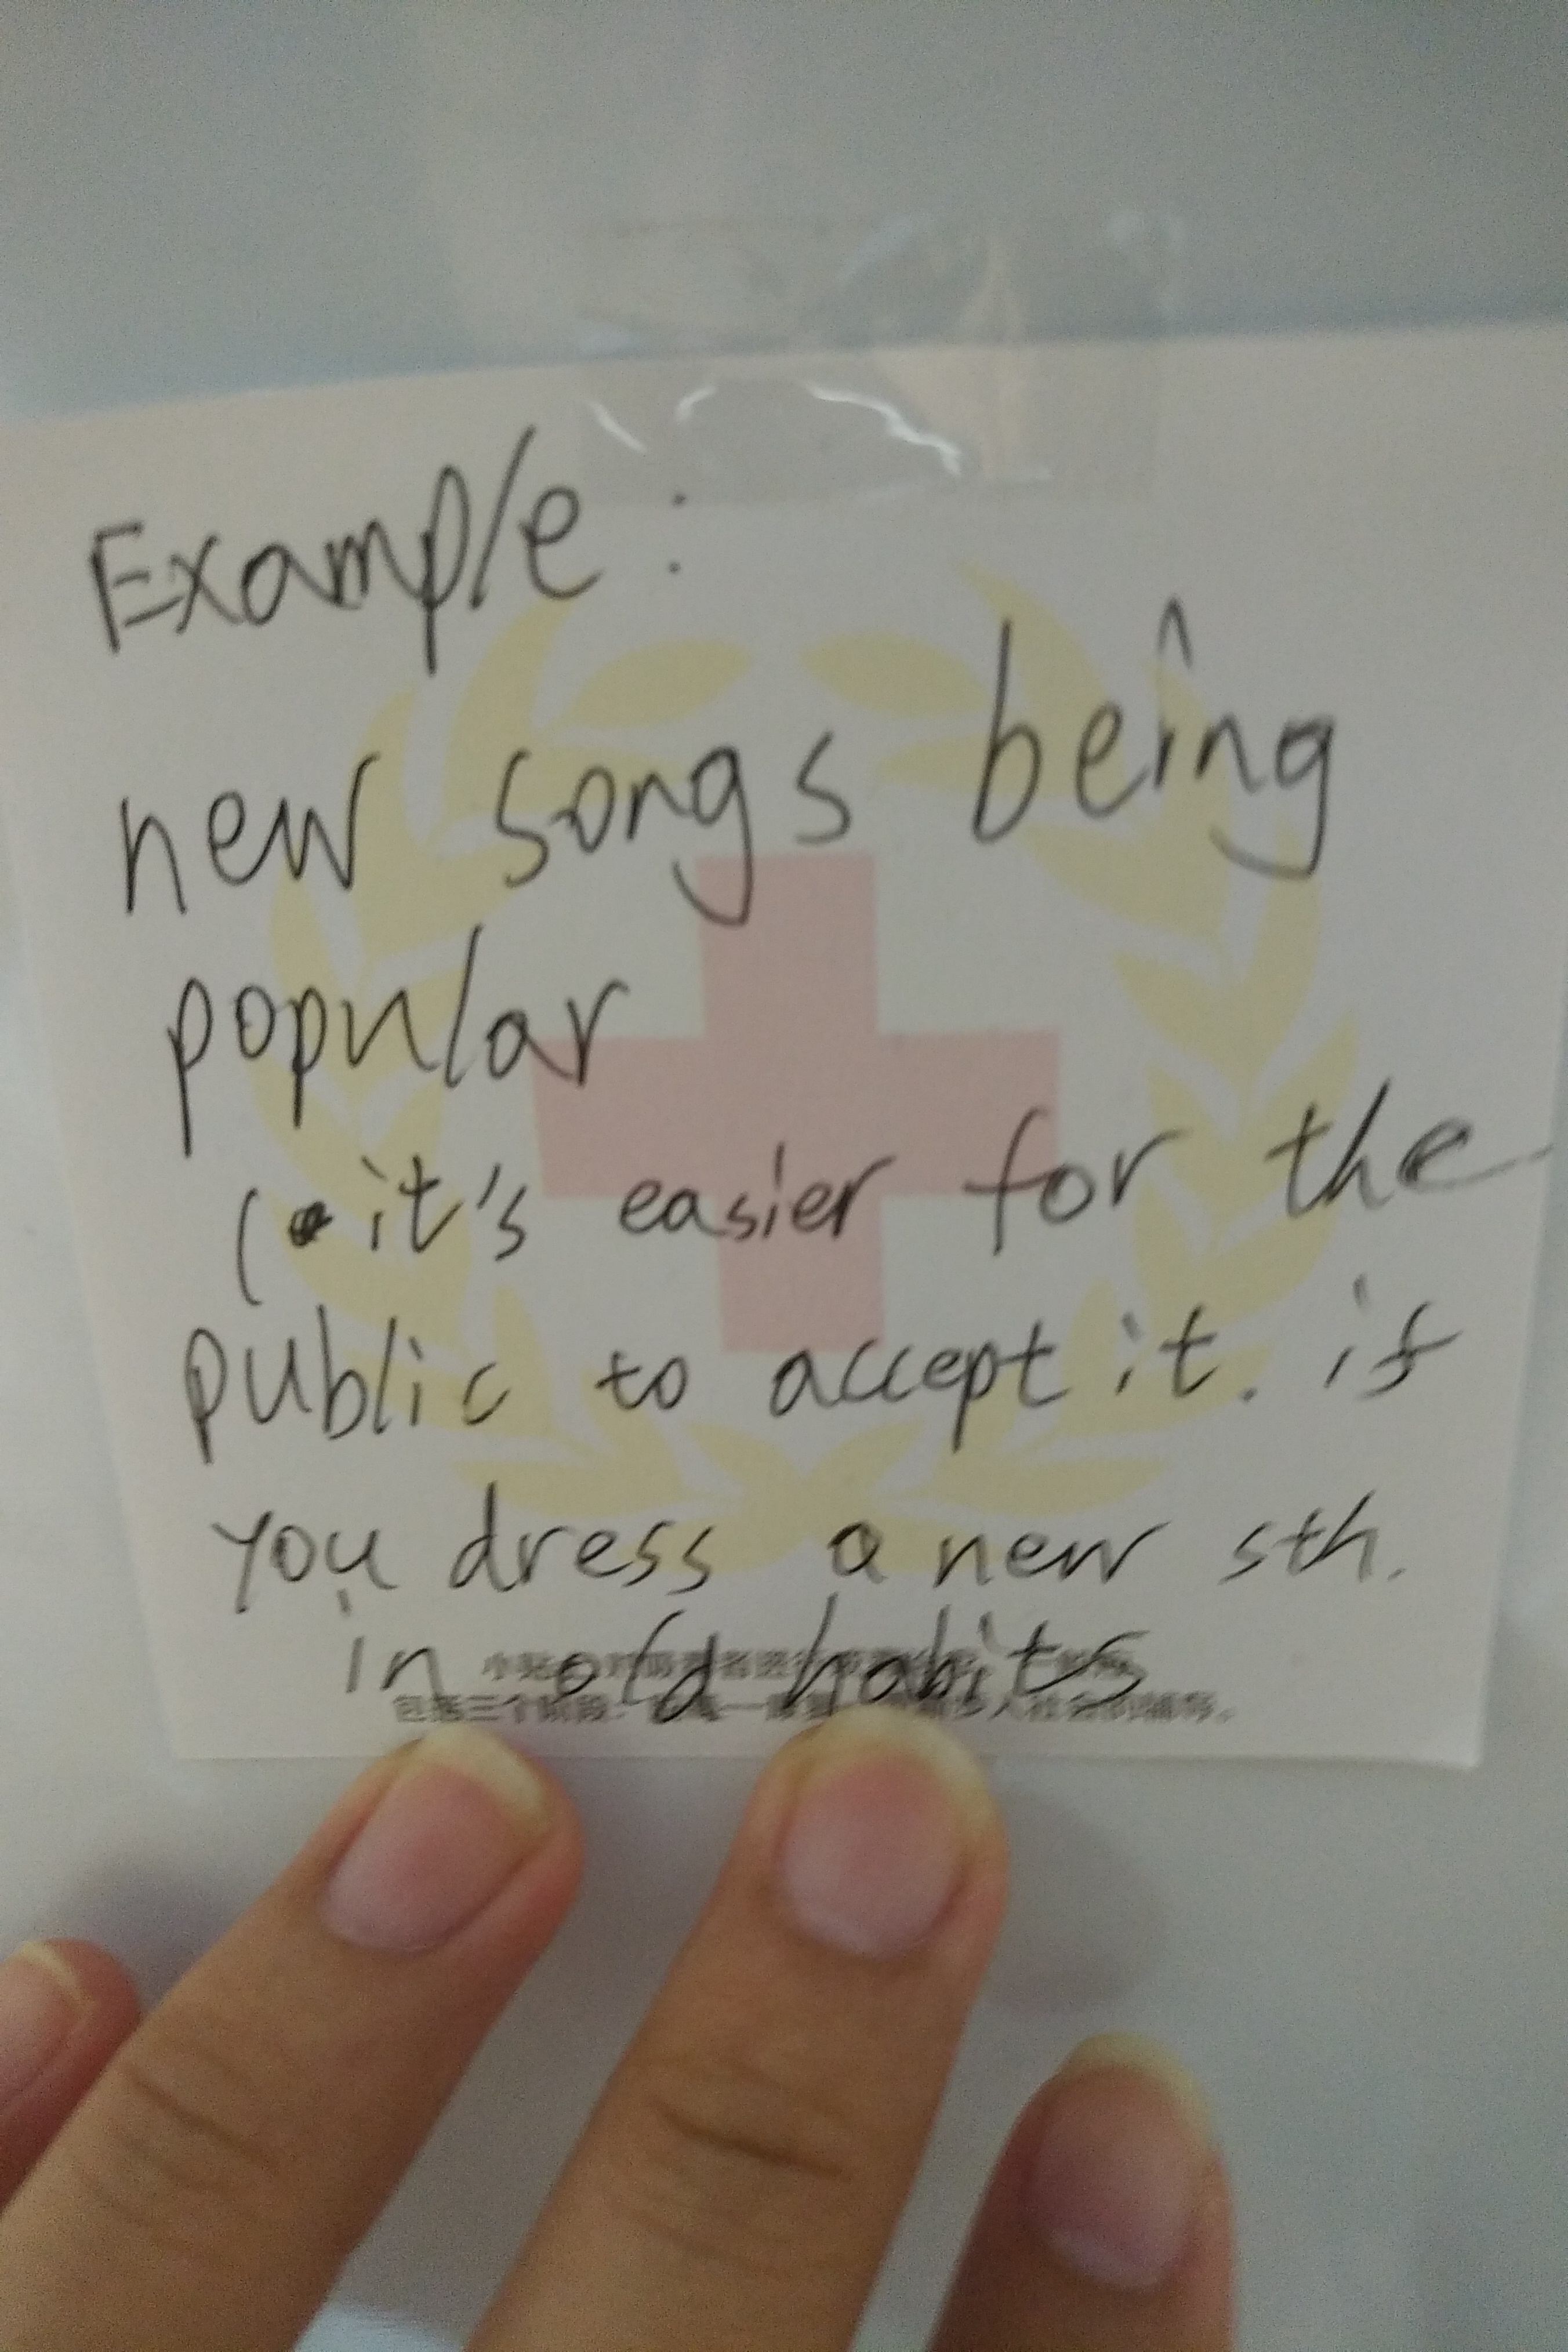 Example :
new songs being
popular
( it's easier for the
public to accept it. if
you dress a new sth.
in old habits